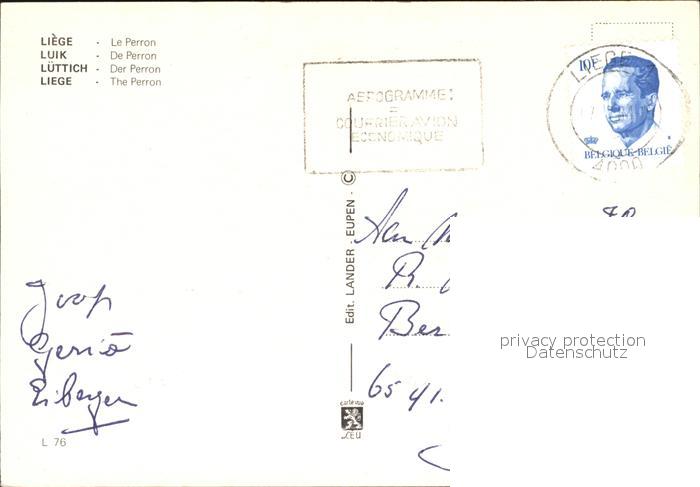 LIÈGE - Le Perron
LUIK - De Perron
LÜTTICH - Der Perron
LIEGE - The Perron
AEROGRAMME:
=
COURRIER AVION
ECONOMIQUE
LIEGE
10F
BELGIQUE-BELGIË
4000
Edit. LANDER, EUPEN - ©
Aan
R.
Ber
65 41.
privacy protection
Datenschutz
Joop
Eibergen
carte vue
L 76